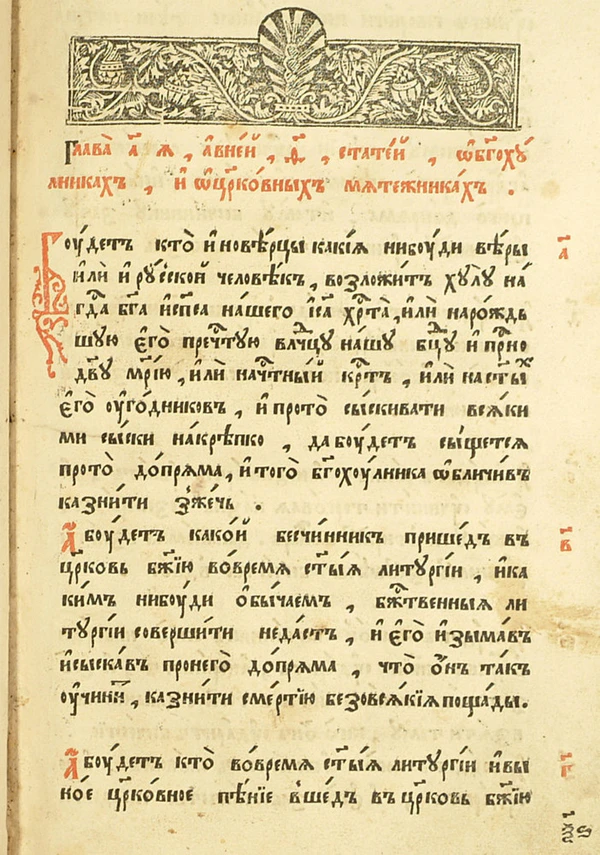 Глава̀ а҃ я , а҆ в̾ней , ѳ҃ , статей , ѡ҆ бг҃охꙋ́
лникахъ , и҆ ѡ҆ цр҃ко́вныхъ мѧте́жникахъ .
Бꙋ́детъ кто̀ и҆новѣ́рцы какі́ѧ нибꙋди вѣ́ры а҃
и҆лѝ и҆ рꙋ́сской человѣ́къ , возложи́тъ хꙋлꙋ̀ на
гд҃а бг҃а и҆ сп҃са на́шего і҆с҃а хр҃та̀ , и҆лѝ на ро́ждь
шꙋю є҆го̀ пречⷭ҇тꙋю влⷣчцꙋ на́шꙋ бц҃ꙋ и҆ прⷭ҇но
дв҃ꙋ мр҃і́ю , и҆лѝ на чⷭ҇тны́й крⷭ҇тъ , и҆лѝ на ст҃ы́хъ
є҆го̀ ᲂу҆го́дниковъ , и҆ про то̀ сы́скивати всѧ́ки
ми сы́ски на́крѣпко , да бꙋ́детъ сы́щетсѧ
про то̀ до́прѧма , и҆ того̀ бг҃охꙋ́лника ѡ҆бличи́въ
казни́ти зже́чь .
А҆ бꙋ́детъ како́й безчи́нникъ прише́дъ въ в҃
цр҃ковь бж҃ію во́ времѧ ст҃ы́ѧ литꙋргі́и , и҆ ка
ки́мъ нибꙋ́ди ѻ҆бы́чаемъ , бжⷭ҇твенныѧ ли
тꙋргі́и соверши́ти не да́стъ , и҆ є҆го̀ и҆зыма́въ
и҆ сыска́въ про него̀ до́прѧма , что̀ ѻ҆́нъ та́къ
ᲂу҆чини́тъ , казни́ти сме́ртію безо всѧ́кіѧ поща́ды .
А҆ бꙋ́детъ кто̀ во́ времѧ ст҃ы́ѧ литꙋргі́и и҆ в̾ы г҃
но́е цр҃ко́вное пѣ́ніе в̾ше́дъ въ цр҃ковь бж҃ію